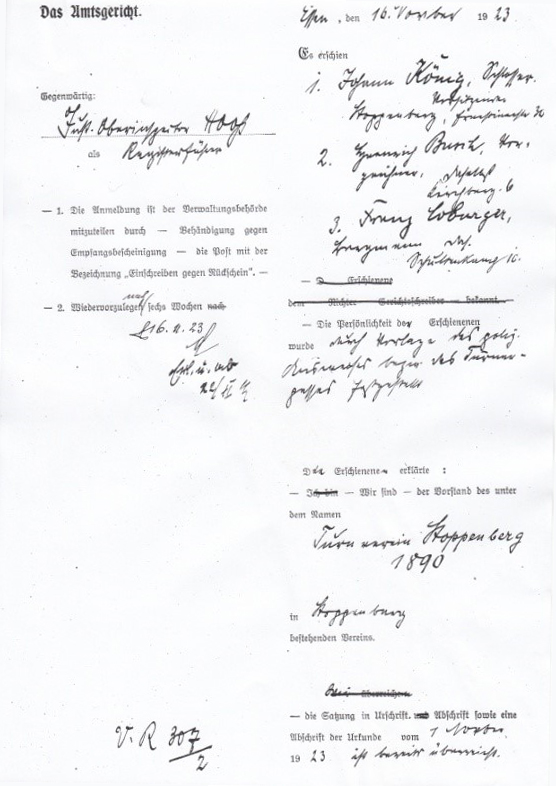 Das Amtsgericht.
Gegenwärtig:
Just. Oberinspektor
als Registerführer
— 1. Die Anmeldung ist der Verwaltungsbehörde
mitzuteilen durch — Behändigung gegen
Empfangsbescheinigung — die Post mit der
Bezeichnung „Einschreiben gegen Rückschein“. —
— 2. Wiedervorzulegen nach sechs Wochen nach
16. 11. 23
V. R 307
2
Essen, den 16. Novbr 1923
Es erschien
1. Johann König, Schlosser
Stoppenberg,
2. Heinrich
daselbst
Kirchberg. 6
3. Franz Loburger,
Bergmann das.
— D Erschienene
dem Richter — Gerichtsschreiber — bekannt.
— Die Persönlichkeit der Erschienenen
wurde durch Vorlage des poliz.
Ausweises bezw. des Turner-
passes festgestellt
Die Erschienenen erklärte :
— Ich bin — Wir sind — der Vorstand des unter
dem Namen
Turnverein Stoppenberg
1890
in Stoppenberg
bestehenden Vereins.
Wir überreichen
— die Satzung in Urschrift und Abschrift sowie eine
Abschrift der Urkunde vom 1 Novbr.
1923 ist bereits überreicht.